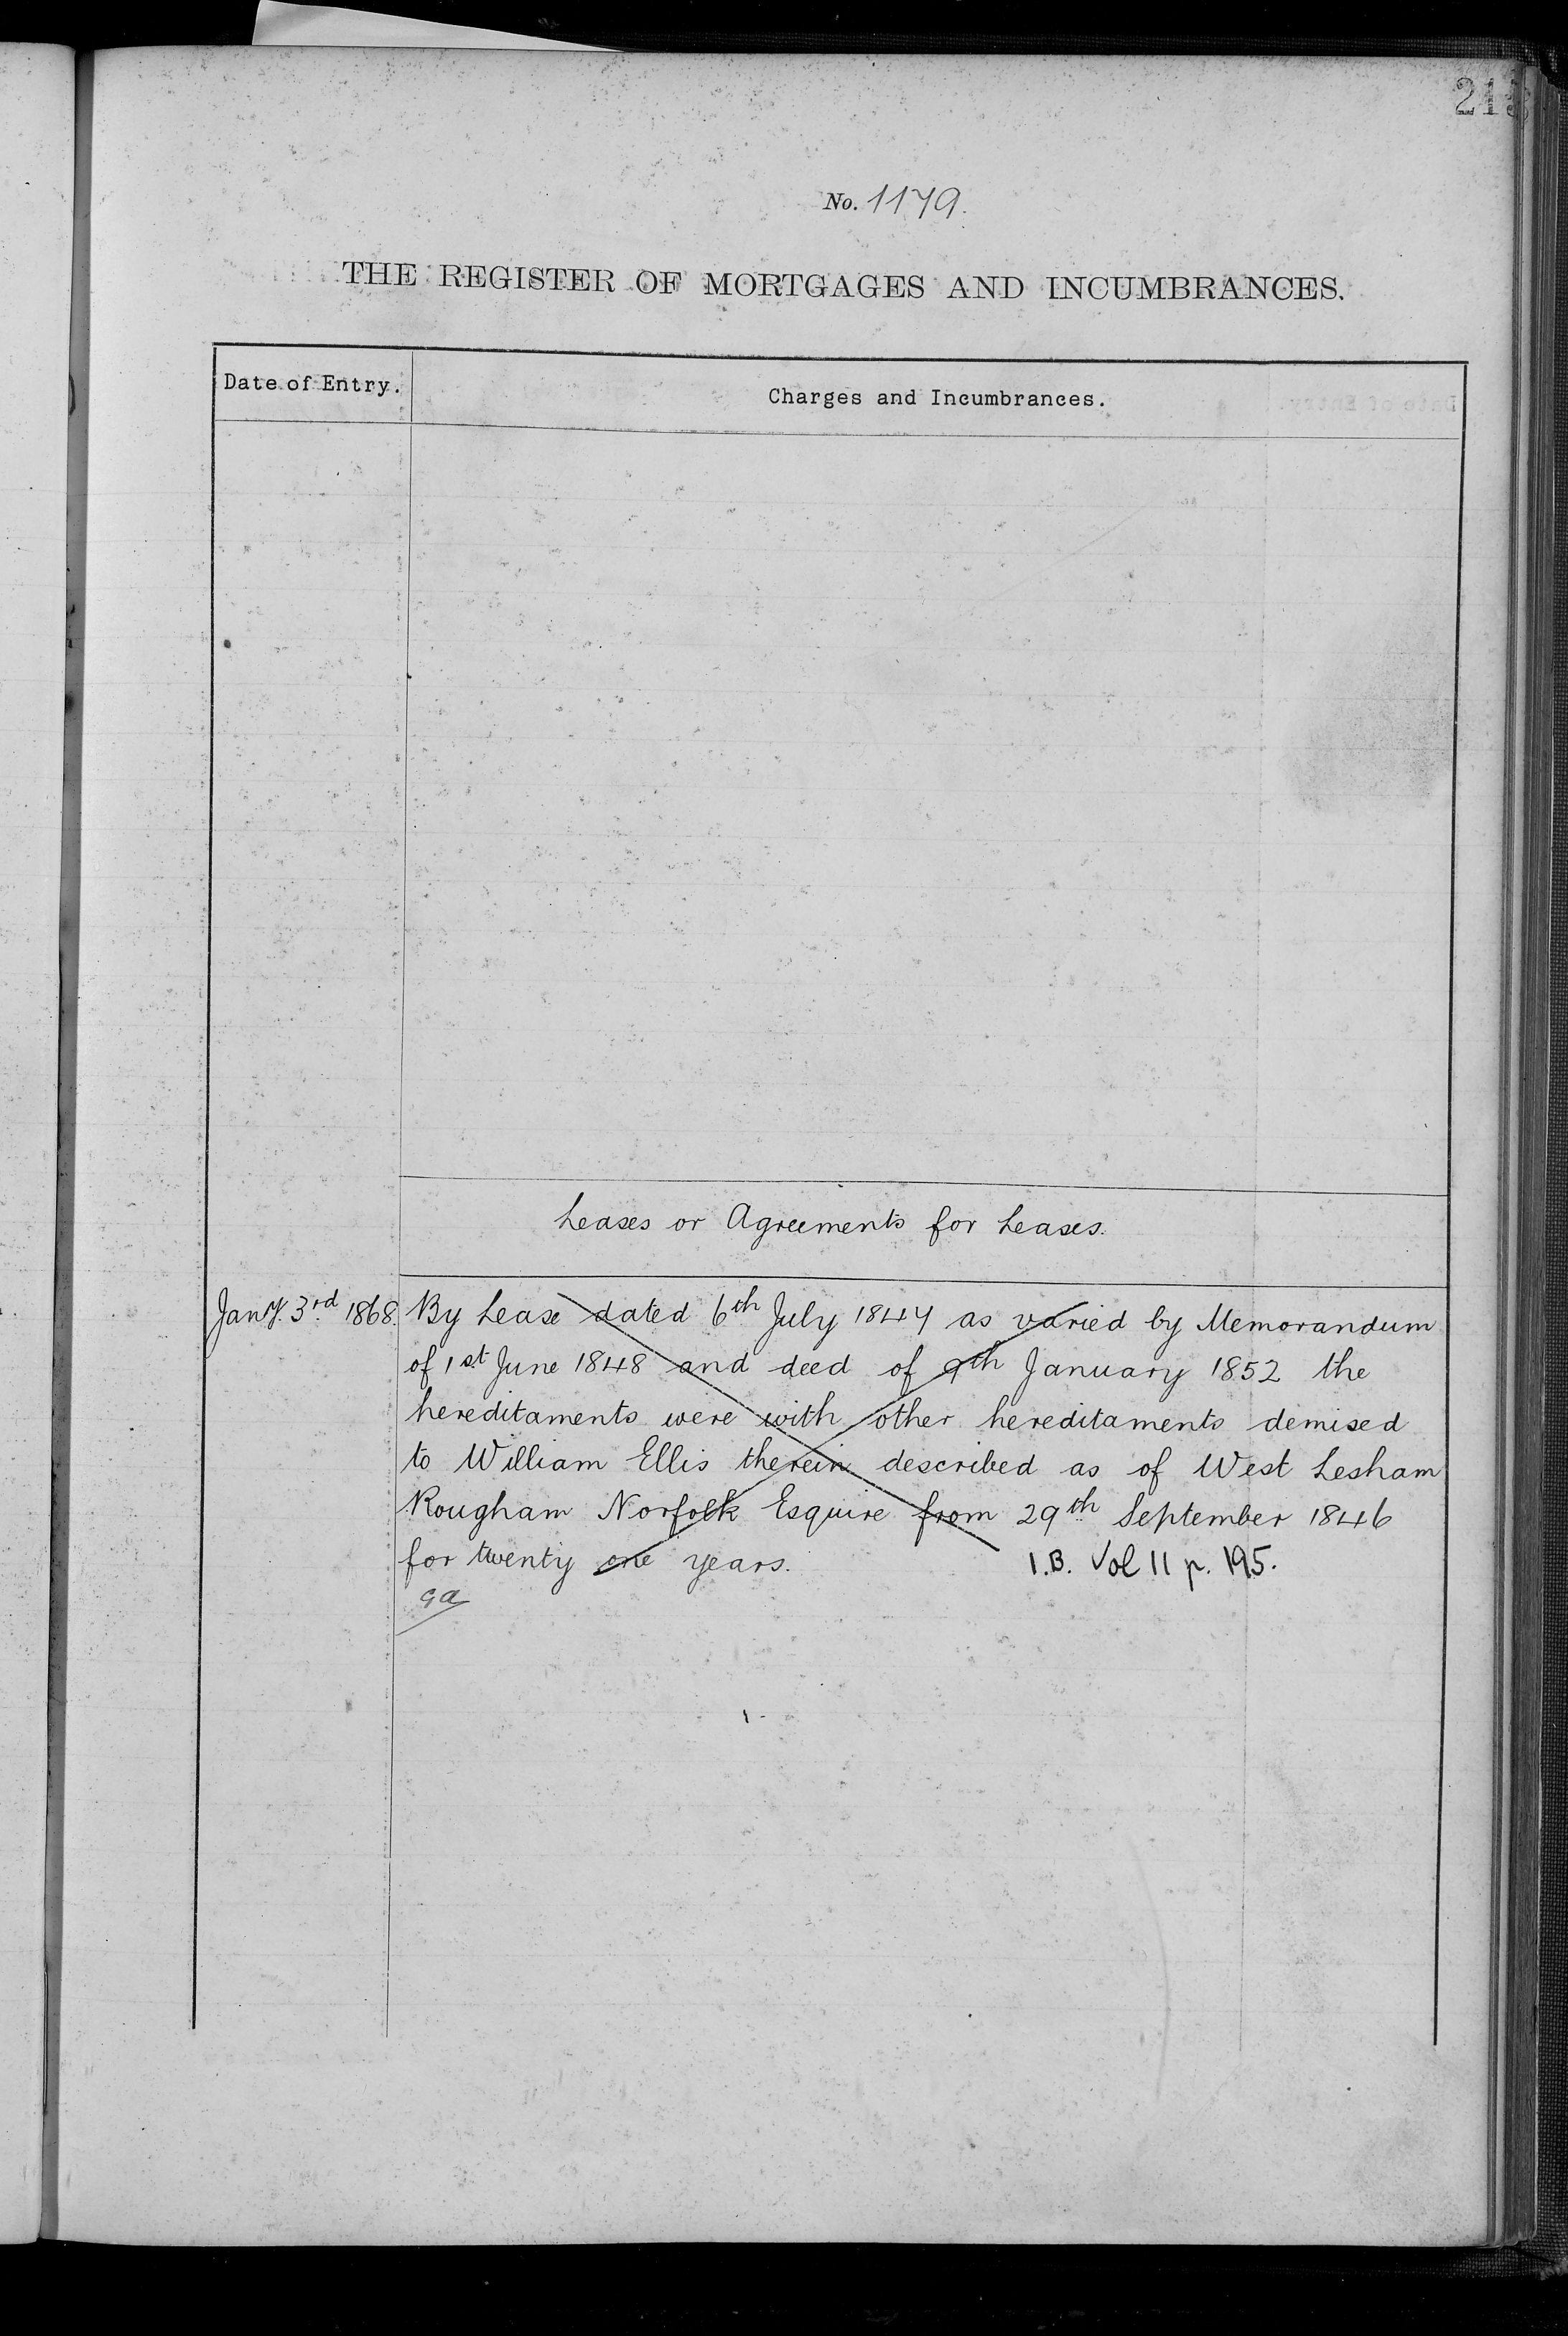 No. 1179.
THE REGISTER OF MORTGAGES AND INCUMBRANCES.
Date of Entry.
Charges and Incumbrances.
Leases or Agreements for Leases.
Jany. 3rd 1868. By Lease dated 6th July 1847 as varied by Memorandum
of 1st June 1848 and deed of 9th January 1852 the
hereditaments were with other hereditaments demised
to William Ellis therein described as of West Lesham
Rougham Norfolk Esquire from 29th September 1846
for twenty one years.
I.B. Vol 11 p. 195.